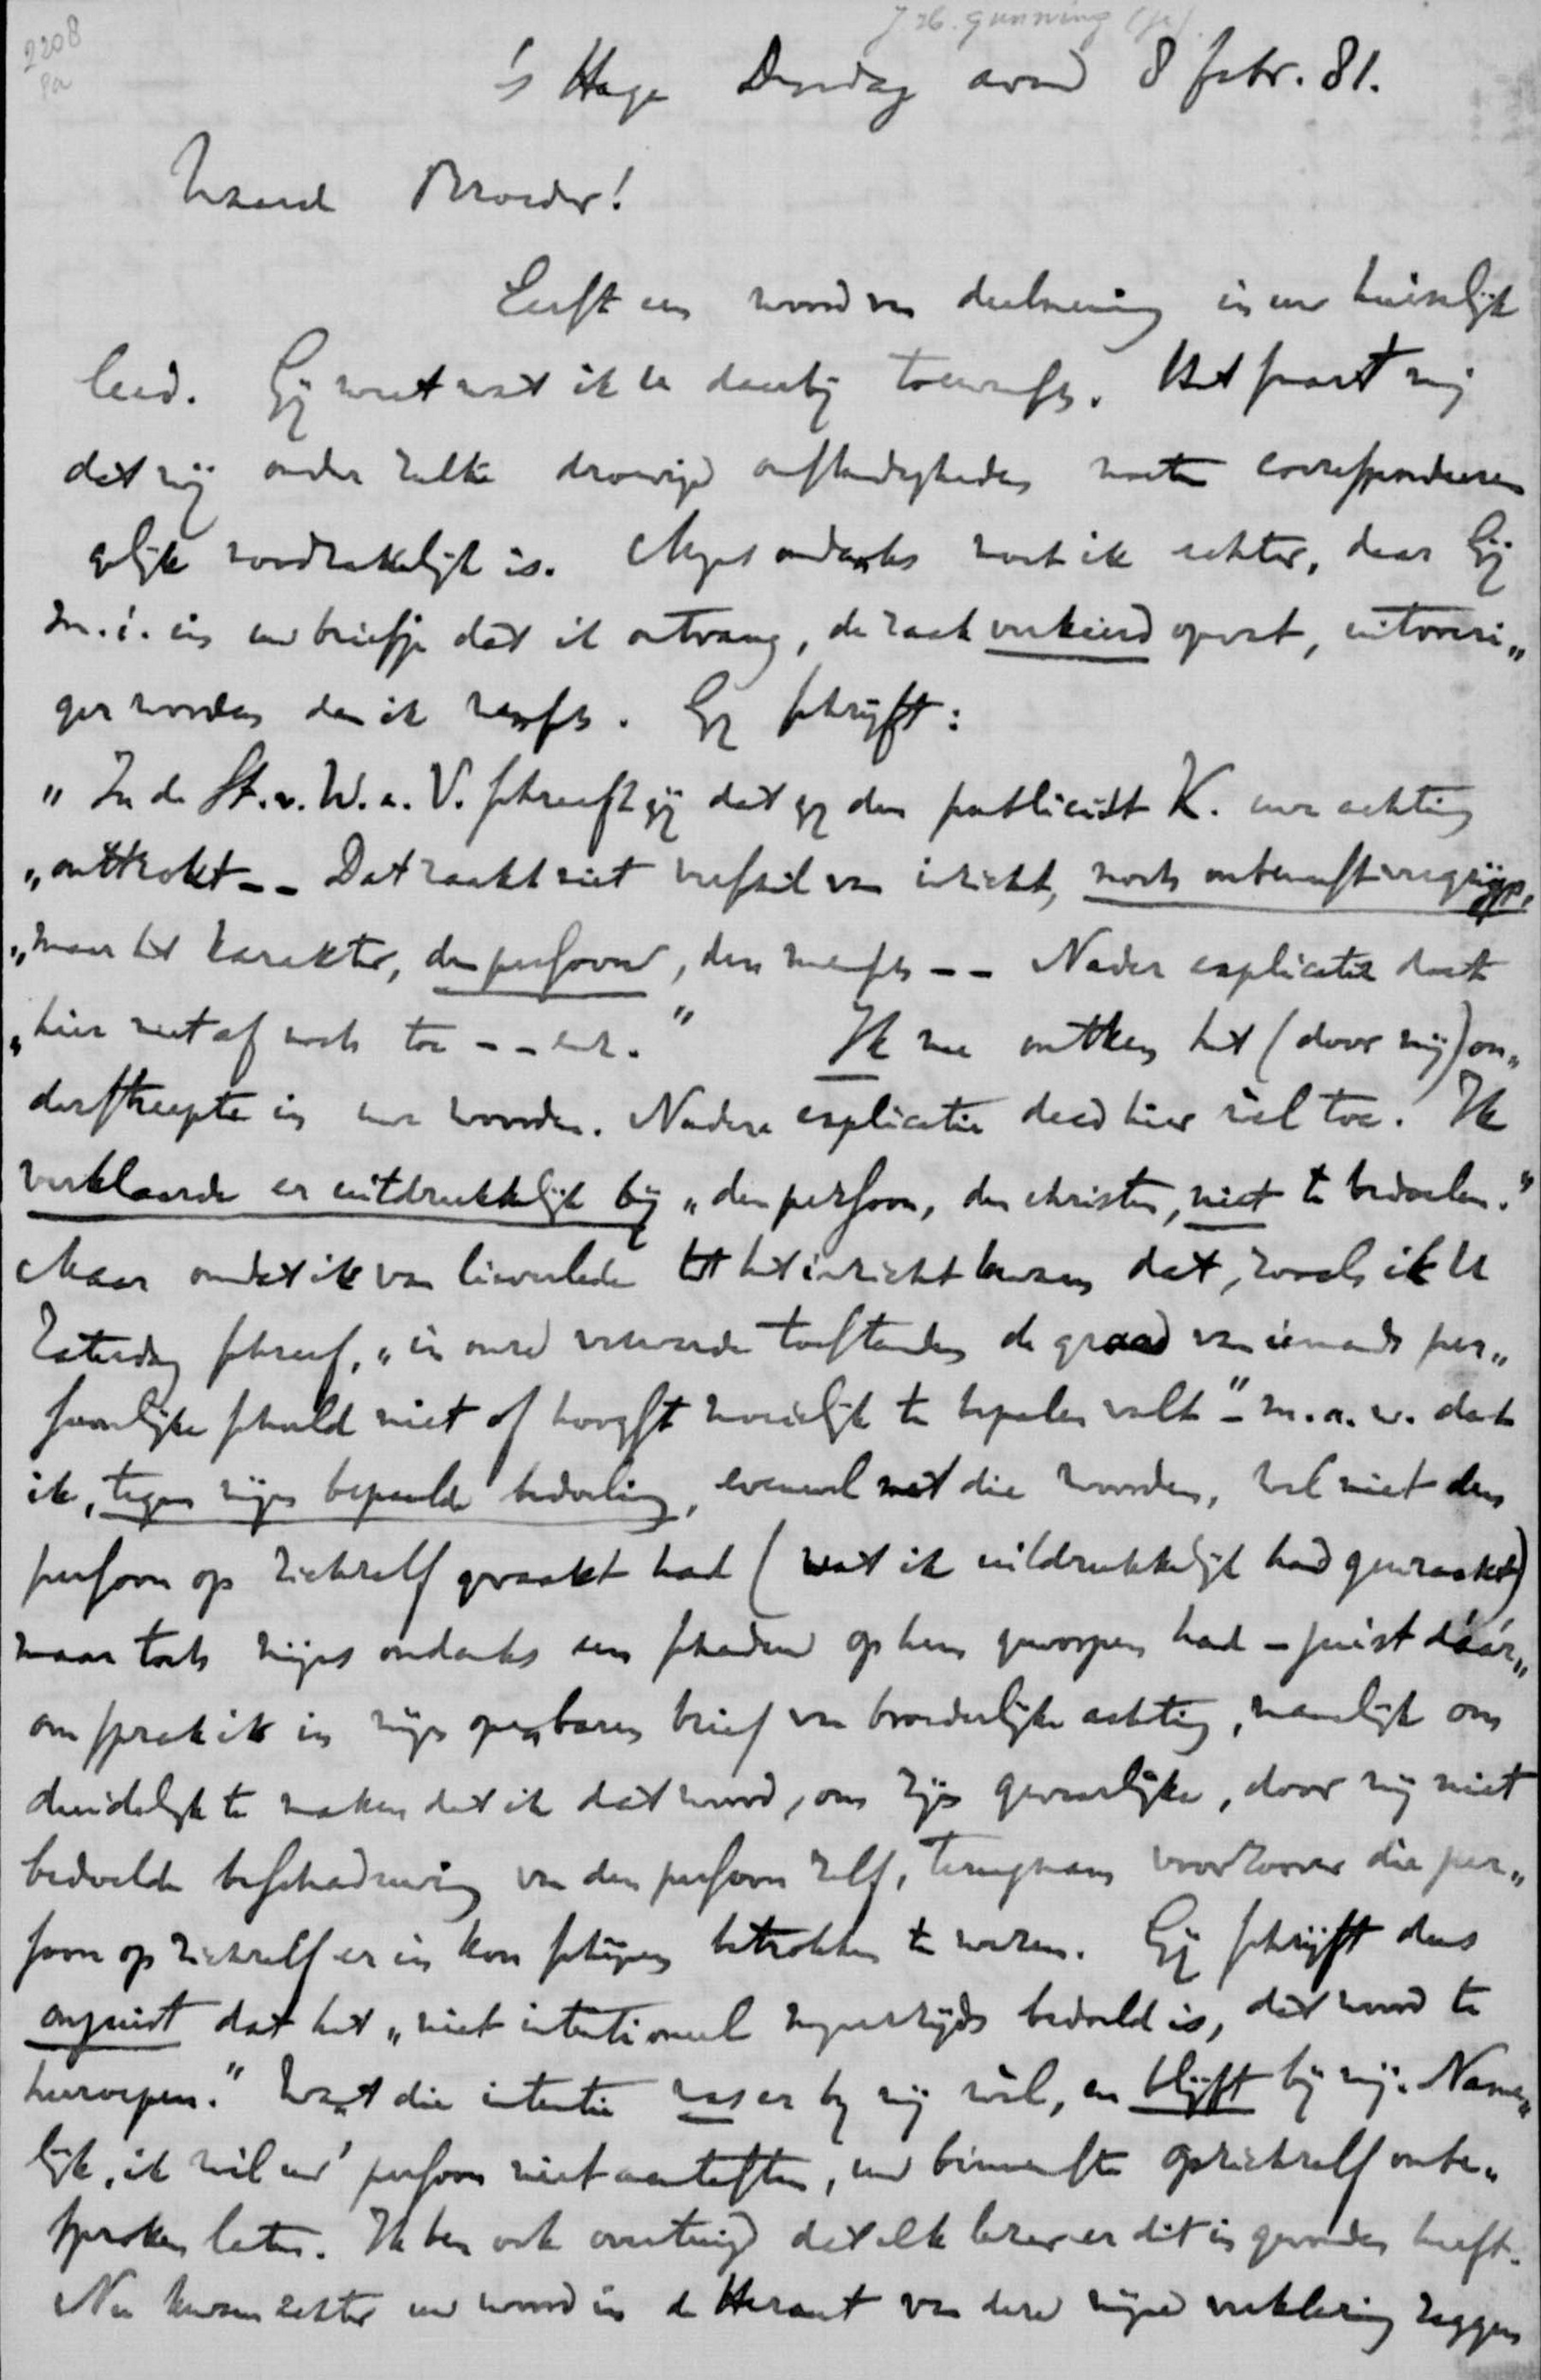 2208
Pa
J.H. Gunning (jr).
's Hage Dinsdag avond 8 febr. 81.
Waarde Broeder!
Eerst een woord van deelneming in uw huiselijk
leed. Gij weet wat ik U daarbij toewensch. Het smart mij
dat wij onder zulke droevige omstandigheden moeten correspondeeren
gelijk noodzakelijk is. Mijns ondanks moet ik echter, daar Gij
m.i. in uw briefje dat ik ontvang, de zaak verkeerd opvat, uitvoeri„
ger worden dan ik wensch. Gij schrijft:
„In de St. v. W. e. V. schreeft gij dat gij den publicist K. uwe achting
„onttrokt -- Dat raakt niet verschil van inzicht, noch onbewust vergrijp,
„maar het karakter, den persoon, den mensch -- Nader explicatie doet
„hier niet af noch toe -- enz." Ik nu ontken het (door mij) on„
derstreepte in uwe woorden. Nadere explicatie deed hier wèl toe. Ik
verklaarde er uitdrukkelijk bij „den persoon, den christen, niet te bedoelen."
Maar omdat ik van lieverlede tot het inzicht kwam dat, zooals ik U
Zaterdag schreef, „in onze verwarde toestanden de graad van iemands per„
soonlijke schuld niet of hoogst moeielijk te bepalen valt" - m.a.w. dat
ik, tegen mijn bepaalde bedoeling, evenwel met die woorden, wel niet den
persoon op zichzelf geraakt had (wat ik uitdrukkelijk had gewraakt)
maar toch mijns ondanks een schaduw op hem geworpen had - juist dáár„
om sprak ik in mijn openbaren brief van broederlijke achting, namelijk om
duidelijk te maken dat ik dat woord, om zijn gevaarlijke, door mij niet
bedoelde beschaduwing van den persoon zelf, terugnam voorzoover die per„
soon op zichzelf er in kon schijnen betrokken te wezen. Gij schrijft dus
onjuist dat het „niet intentioneel mijnerzijds bedoeld is, dat woord te
herroepen." Want die intentie was er bij mij wèl, en blijft bij mij. Name„
lijk, ik wil uw' persoon niet aantasten, uw binnenste op zichzelf onbe„
sproken laten. Ik ben ook overtuigd dat elk lezer er dit in gevonden heeft.
Nu kwam echter uw woord in de Heraut van deze mijne verklaring zeggen